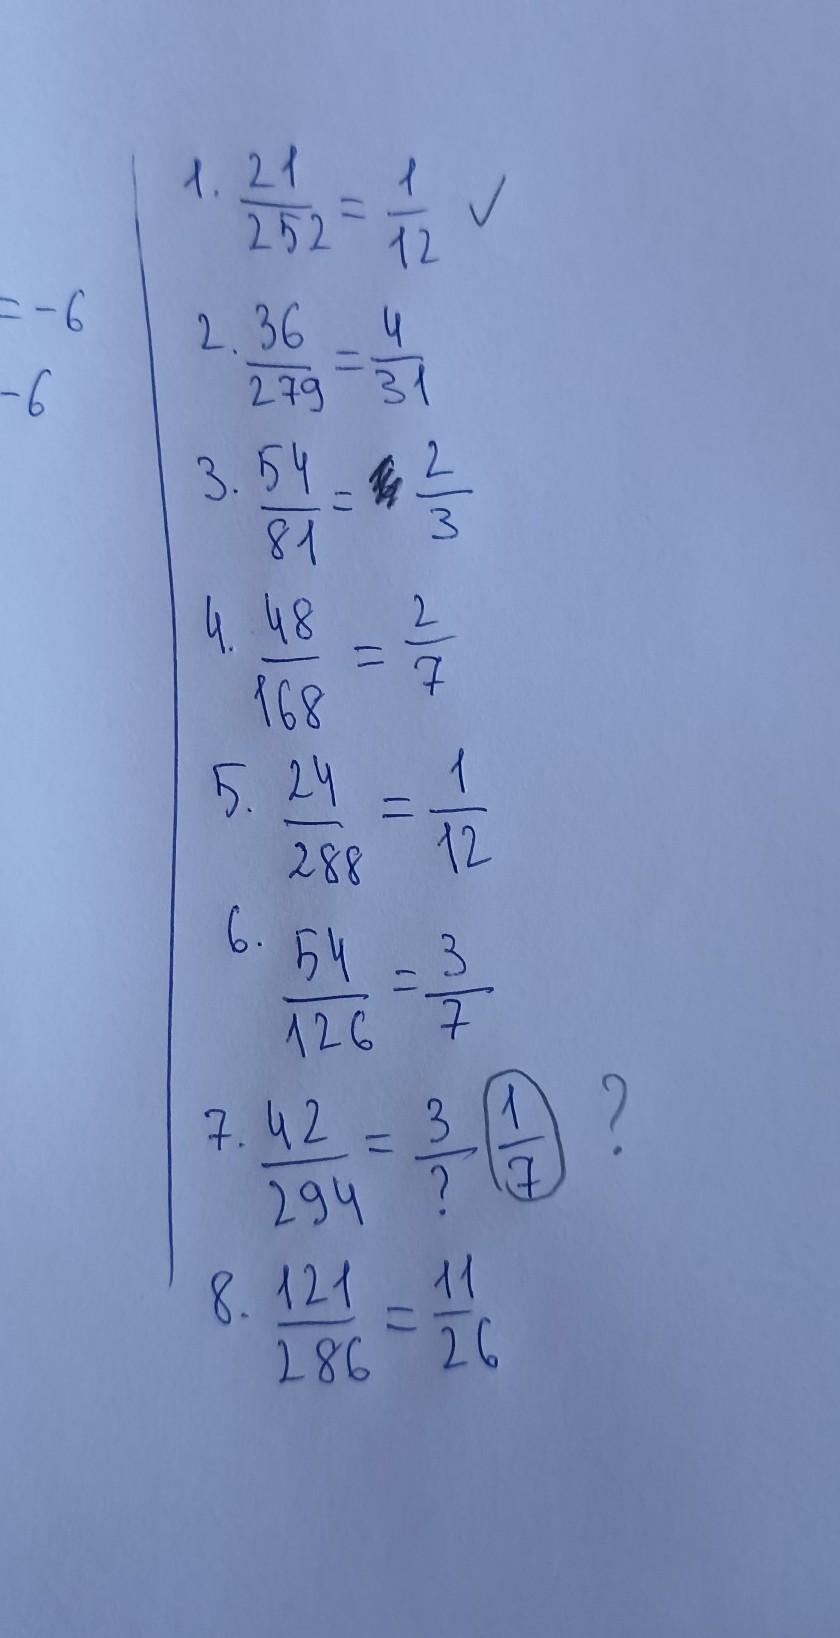 = -6
-6
1. 21/252 = 1/12 ✓
2. 36/279 = 4/31
3. 54/81 = 2/3
4. 48/168 = 2/7
5. 24/288 = 1/12
6. 54/126 = 3/7
7. 42/294 = 3/? 1/7 ?
8. 121/286 = 11/26